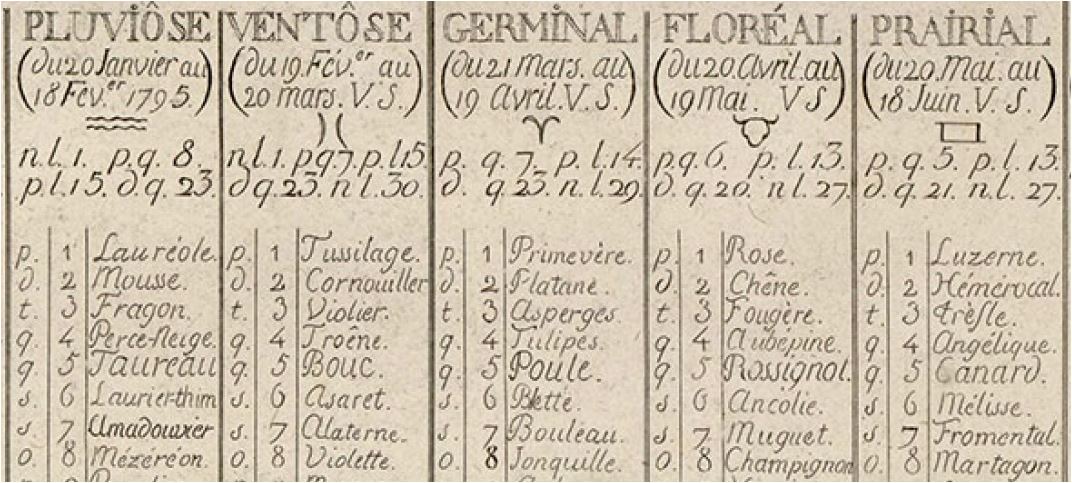 PLUVIÔSE
(du 20 Janvier au
18 Fév.er 1795.)
n.l.1. p.q.8.
p.l.15. d.q.23.
p. 1 Lauréole.
d. 2 Mousse.
t. 3 Fragon.
q. 4 Perce-Neige.
q. 5 Taureau
s. 6 Laurier-thim
s 7 Amadouvier
o. 8 Mézéréon.
VENTÔSE
(du 19. Fév.er au
20 mars. V. S.)
n.l.1. pq7. p.l15.
d q.23. n l.30.
p. 1 Tussilage.
d. 2 Cornouiller
t. 3 Violier.
q. 4 Troêne.
q. 5 Bouc.
s. 6 Asaret.
s. 7 Alaterne.
o. 8 Violette.
GERMINAL
(du 21 Mars. au
19 Avril. V. S.)
p. q.7. p. l.14.
d. q.23. n.l.29.
p. 1 Primevère.
d. 2 Platane.
t. 3 Asperges.
q. 4 Tulipes.
q. 5 Poule.
s. 6 Blette.
s. 7 Bouleau.
o. 8 Jonquille.
FLORÉAL
(du 20. Avril. au
19 Mai. V S)
p.q.6. p. l.13.
d. q.20. n l.27.
p. 1 Rose.
d. 2 Chêne.
t. 3 Fougère.
q. 4 Aubépine.
q. 5 Rossignol.
s. 6 Ancolie.
s. 7 Muguet.
o. 8 Champignon
PRAIRIAL
(du 20. Mai. au
18 Juin. V. S.)
p. q.5. p.l.13.
d. q.21. n.l.27.
p. 1 Luzerne.
d. 2 Hémérocal.
t. 3 trèfle.
q. 4 Angélique.
q. 5 Canard.
s. 6 Mélisse.
s. 7 Fromental.
o. 8 Martagon.